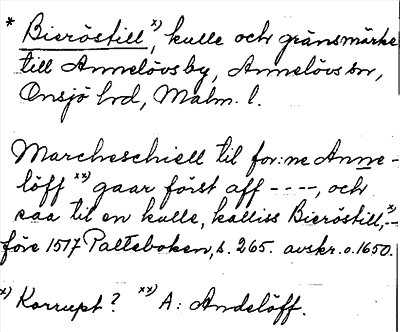 * Bieröstill x), kulle och gränsmärke
till Annelövsby, Annelövs sn,
Onsjö hd, Malm. l.
Marcheschiell til for:ne Anne-
löff xx) gaar först aff ----, och
saa til en kulle, kalliss Bieröstill, x) --
före 1517 Palteboken, s. 265. avskr. o. 1650.
x) Korrupt? xx) A: Andelöff.